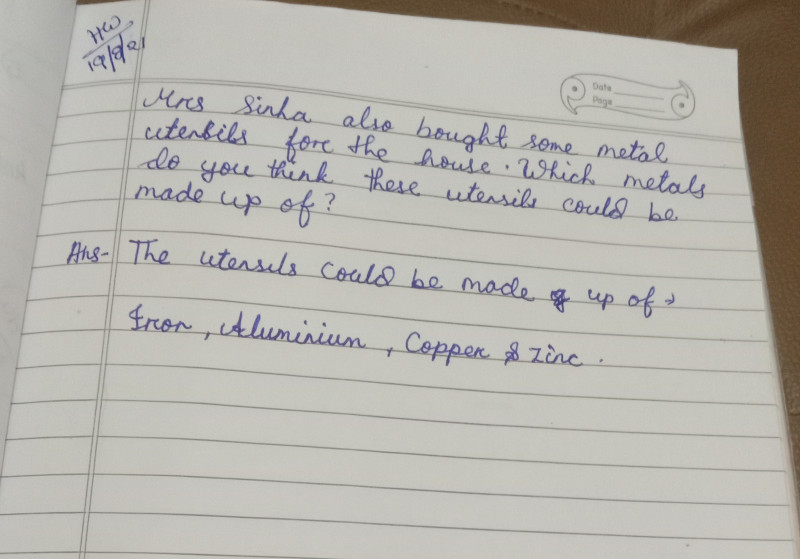 HW
19/8/21
Date
Page
Mrs Sinha also bought some metal
utensils for the house. Which metals
do you think these utensils could be
made up of?
Ans- The utensils could be made up of →
Iron, Aluminium, Copper & Zinc.